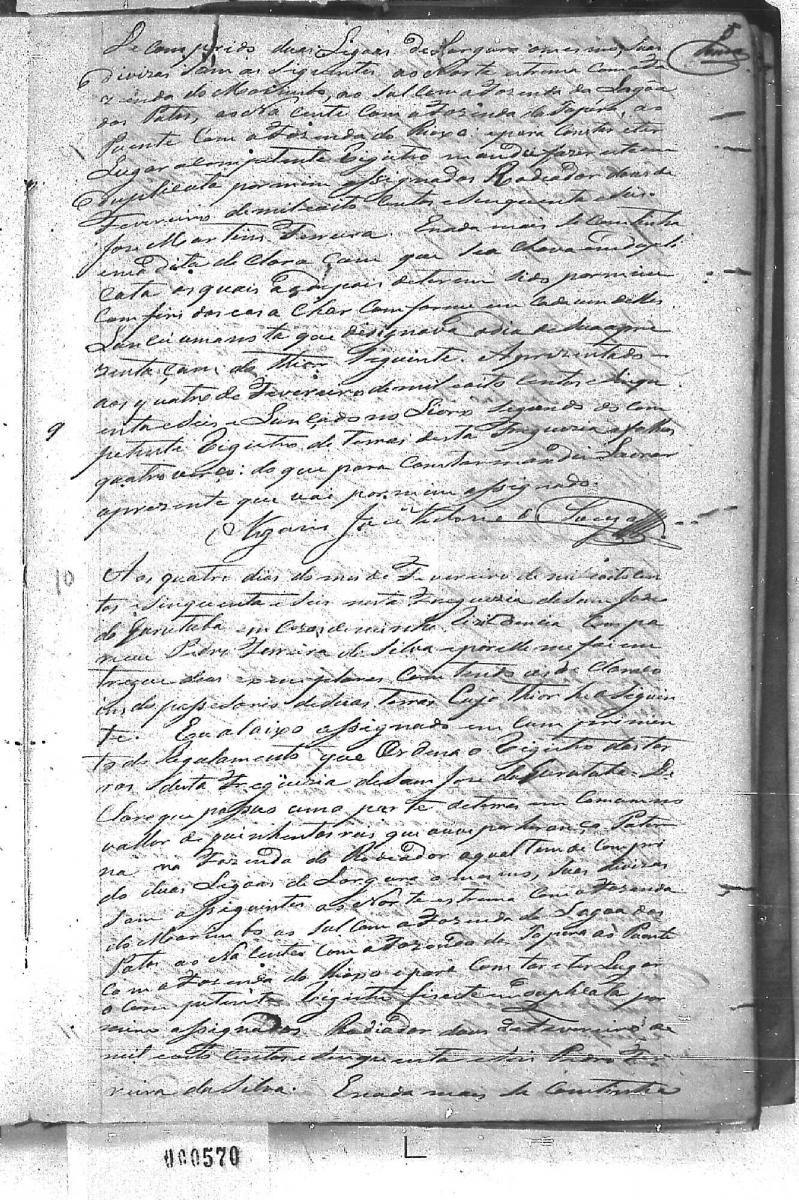 5
De comprido duas Legoas de Largura o mesmo, suas
divizas sam as siguentes, ao Norte estrema com a Fa
zenda do Morimbo, ao Sul Com a Fazenda da Lagôa
dos Patos, ao Nacente Com a Fazenda da Tapera, ao
Puente Com a Fazenda do Moxo, epara Constar eter
Lugar a competente Registro mandei fazer este em
duplicata por mim assignados Rodiador dous de
Fevereiro de mil eoito Centos e Sinquenta e Seis.
José Martins Ferreira. Enada mais se Continha
em a dita de Clara Çam que sea chava em dupli
cata as quais depois deterem sido por mim
Com firidas eas a Char Com forme em cada um delles
Lancei uma nota que designava o dia de sua apre
zenta çam do thior siguinte. Aprezentado
aos quatro de Fevereiro de mil eoito centos e sinqu
enta e Seis e Lançado no Livro segundo do Com
petente Registro de Terras desta Freguezia a folhas
quatro verço: do que para Constar mandei Lavrar
aprezente que vai por mim assignado.
Vigario José Victorino de Souza
9
10
Aos quatro dias do mes de Fevereiro de mil eoito cen
tos e Sinquenta e Seis nesta Freguezia de Sam José
do Gurutuba em Caza de minha Rezidencia Compa
receu Pedro Ferreira da Silva epor elle me foi en
tregue dous exemplares Com tendo as de Claraço
ins de pussuidor de suas terras Cujo thior he o seguin
te. Eu abaixo assignado em Cum primen
to do Regulamento que Ordena o Registro das ter
ras desta Freguezia de Sam José do Gurutuba De
Claro que possuo uma parte de terras em Comum no
vallor de quinhentos reis que ouve por herança Pater
na na Fazenda do Rodiador a qual tem de Compri
do duas Legoas de Largura o mesmo, suas divizas
sam as siguintes ao Norte estrema Com a Fazenda
do Morimbo ao Sul Com a Fazenda da Lagoa dos
Patos ao Nacente Com a Fazenda da Tapera ao Puente
Com a Fazenda do Moxo epara Com tar eter Lugar
o Com petente Registro fiz este em duplicata por
mim assignados Rodiador dous de Fevereiro de
mil eoito Centos e Sinquenta e Seis Pedro Fe
rreira da Silva. Enada mais se Continha
000570